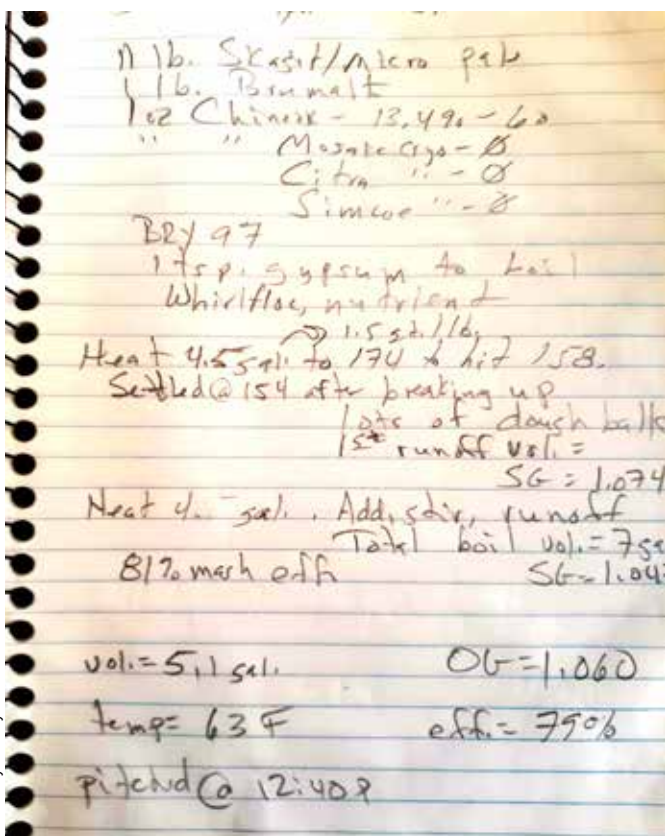 11 lb. Skagit/Micro pale
1 lb. Brumalt
1 oz Chinook - 13.4% - 60
" " Mosaic Cryo - Ø
Citra " - Ø
Simcoe " - Ø
BRY 97
1 tsp. gypsum to boil
Whirlfloc, nutrient
1.5 qt./lb.
Heat 4.5 gal. to 174 to hit 158.
Settled @ 154 after breaking up
lots of dough balls
1st runoff vol. =
SG = 1.074
Heat 4. gal. . Add, stir, runoff
Total boil vol. = 7 ga
81% mash eff. SG = 1.04
vol. = 5.1 gal. OG = 1.060
temp = 63 F eff. = 79%
pitched @ 12:40 P